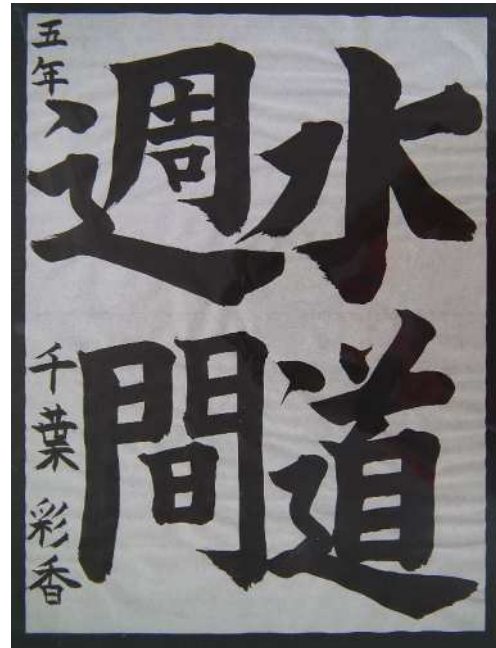 水道
週間
五年 千葉 彩香